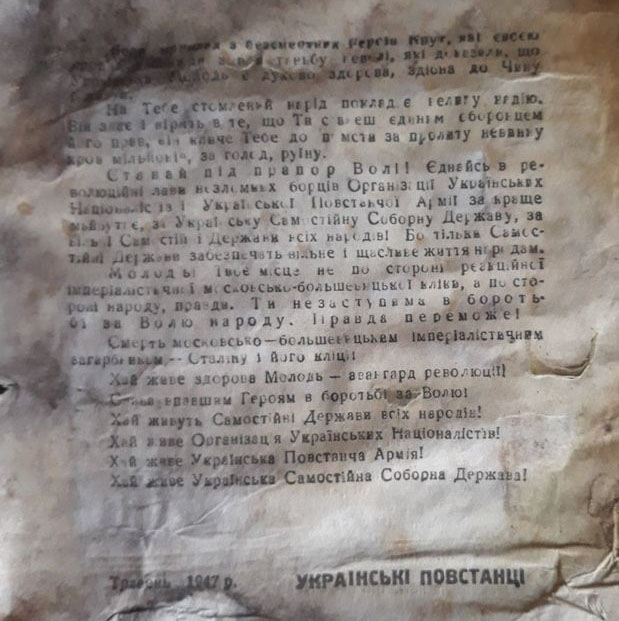 з безсмертних Героїв Крут, які своєю
боротьбу герої, які доказали, що
Молодь є духово здорова, здібна до Чину
На Тебе стомлений нарід покладає велику надію.
Він знає і вірить в те, що Ти є єдиним оборонцем
його прав, він кличе Тебе до помсти за пролиту невинну
кров мільйонів, за голод, руїну.
Ставай під прапор Волі! Єднайсь в ре-
волюційні лави незломних борців Організації Українських
Націоналістів і Української Повстанчої Армії за краще
майбутнє, за Українську Самостійну Соборну Державу, за
Вільні Самостійні Держави всіх народів! Бо тільки Самос-
тійні Держави забезпечать вільне і щасливе життя народам.
Молодь! Твоє місце не по стороні реакційної
імперіялістичної московсько-большевицької кліки, а по сто-
роні народу, правди. Ти незаступима в бороть-
бі за Волю народу. Правда переможе!
Смерть московсько—большевицьким імперіялістичним
загарбникам — Сталіну і його кліці!
Хай живе здорова Молодь — авангард революції!
Слава впавшим Героям в боротьбі за Волю!
Хай живуть Самостійні Держави всіх народів!
Хай живе Організація Українських Націоналістів!
Хай живе Українська Повстанча Армія!
Хай живе Українська Самостійна Соборна Держава!
Травень 1947 р. УКРАЇНСЬКІ ПОВСТАНЦІ